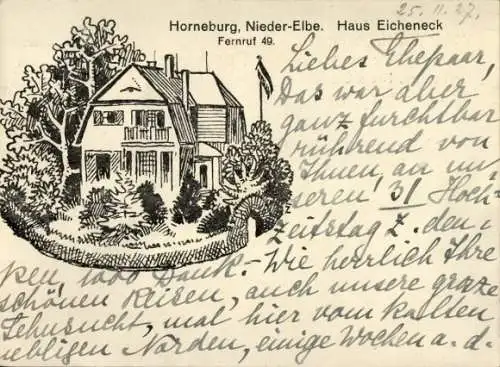 25. 11. 27.
Horneburg, Nieder-Elbe. Haus Eicheneck
Fernruf 49.
Liebes Ehepaar,
Das war aber
ganz furchtbar
rührend von
Ihnen, an un-
seren 31 Hoch-
zeitstag z. den-
ken, 1000 Dank.- Wie herrlich Ihre
schönen Reisen, auch unsere groze
Sehnsucht, mal hier vom kalten
nebligen Norden, einige Wochen a. d.